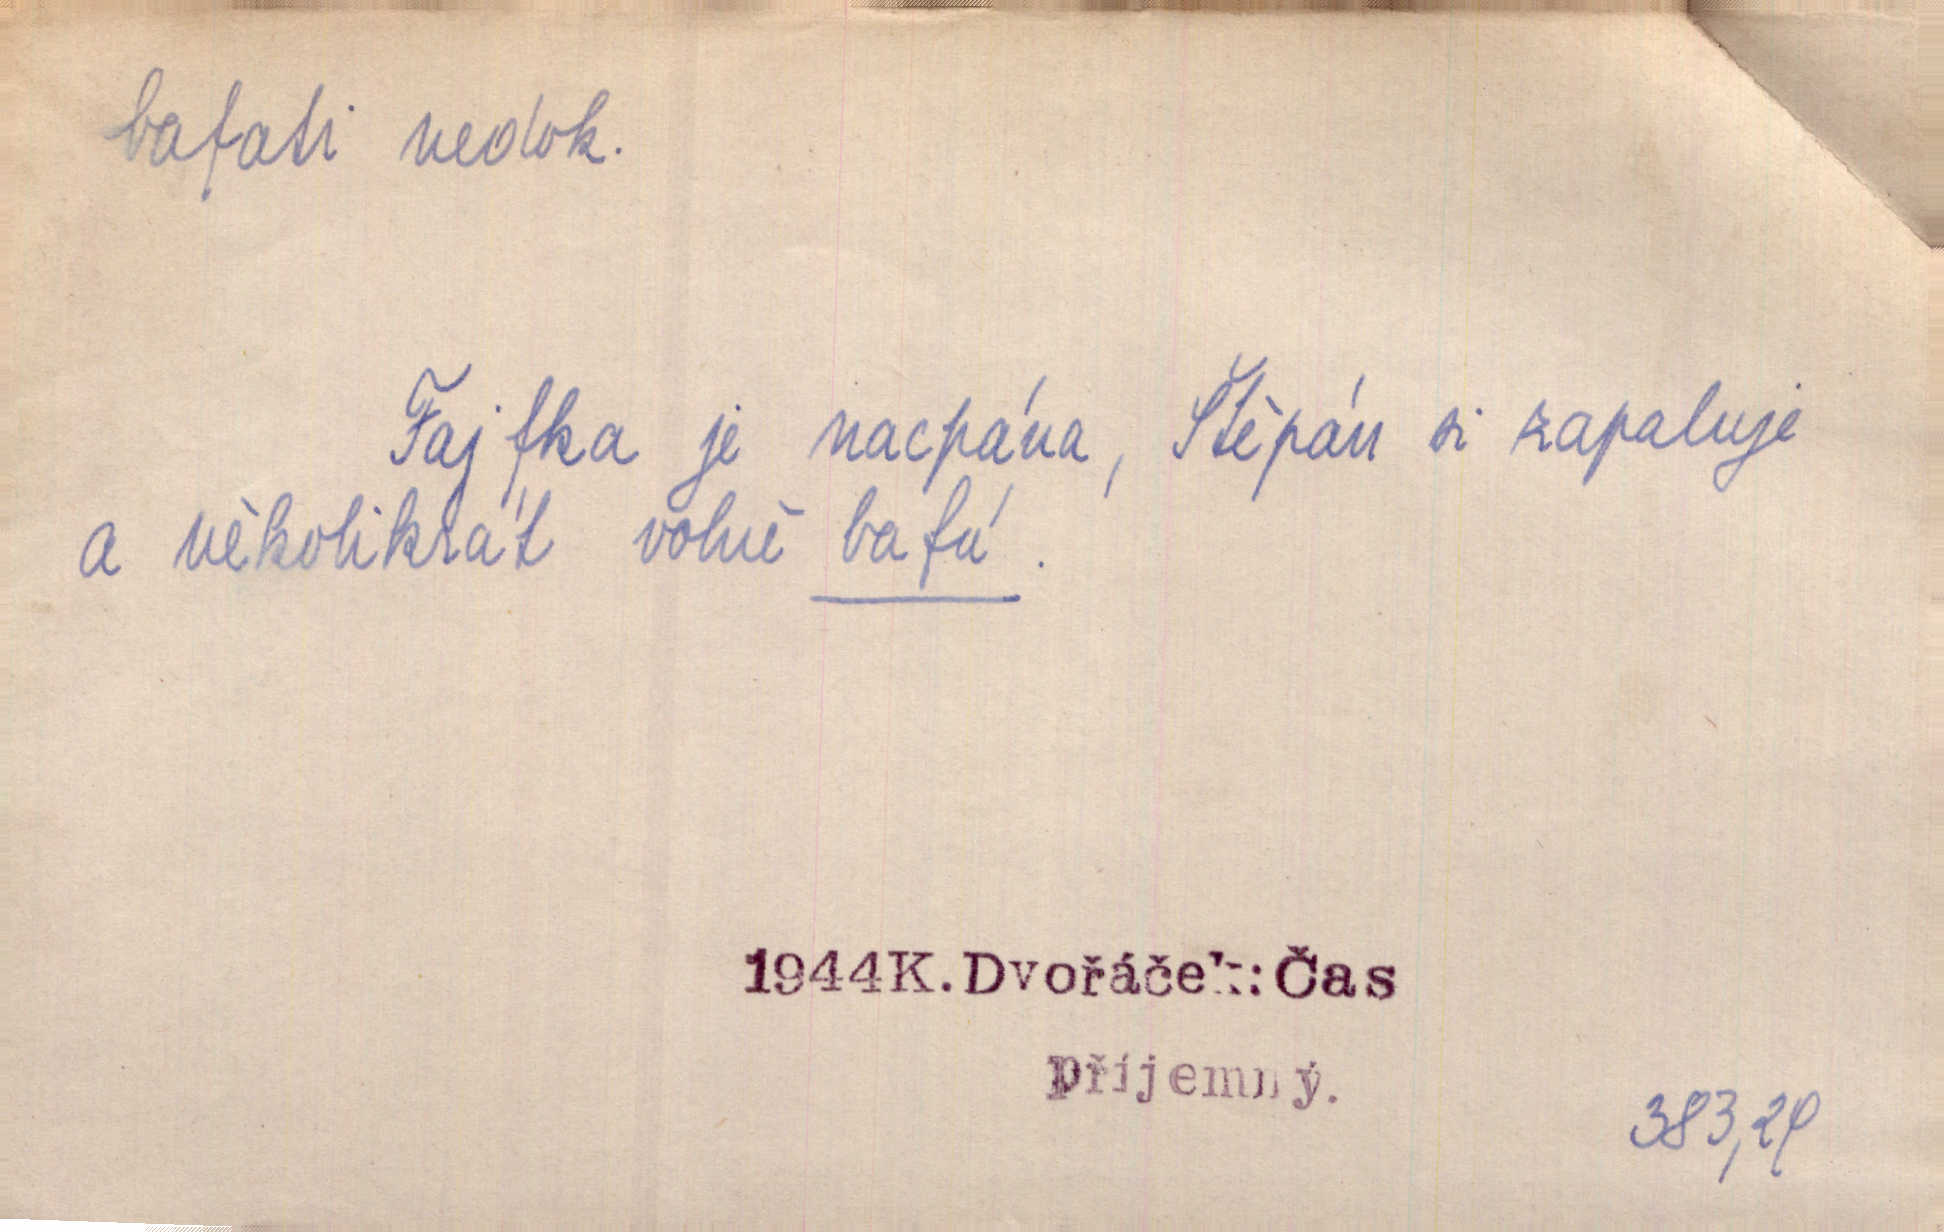 bafati nedok.
Fajfka je nacpána, Štěpán si zapaluje
a několikrát volně bafá.
1944K.Dvořáček:Čas
příjemný.